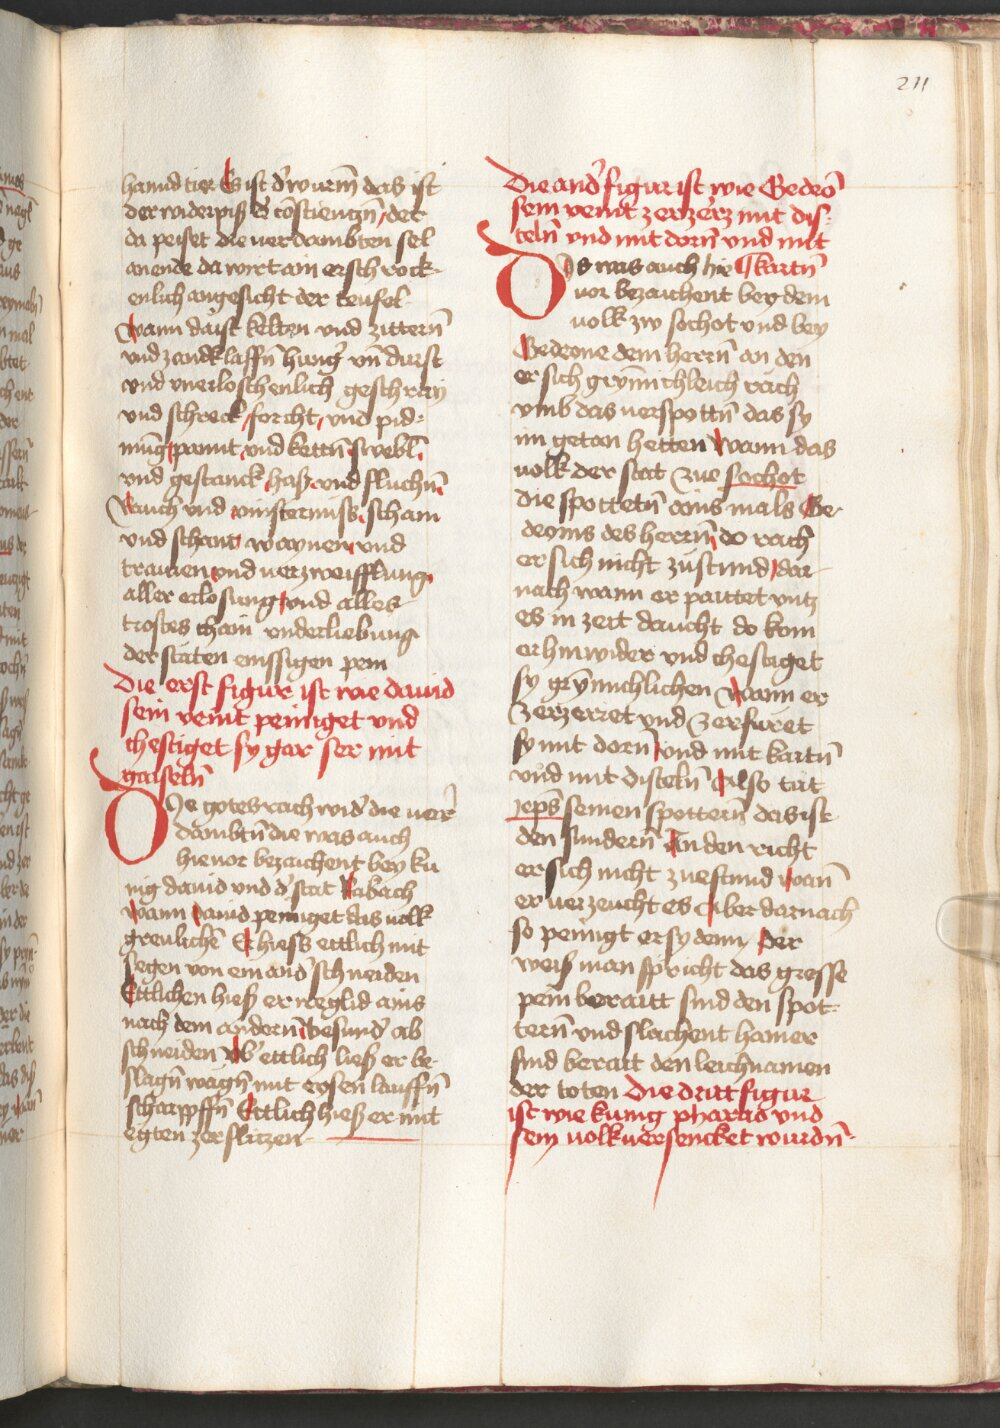 211
hamid tier Es ist d' wurm das ist
der widerpiß d' conscienczn, der
da peiset die verdambten sel
an ende da wirt ain erschrock-
enlich angesicht der teufel
Wann da ist kelten vnd zittern
vnd zandklaffn hung' vn durst
vnd vnerloschenlich geschray
vnd schreck, forcht, vnd pid-
mung pannt vnd kettn swebl,
vnd gestanck haß vnd fluchn,
Rauch vnd vinsternuss scham
vnd schant waynen vnd
trauren vnd verzweifflung,
aller erlosung vnd alles
trostes chain vnderliebung
der stäten emssigen pein
Die erst figur ist wie dauid
sein veint peiniget vnd
chestiget sy gar ser mit
gaiseln
Die gotes rach wid' die ver
dambtn die was auch
hie vor bezaichent bey ku
nig dauid vnd d' stat Rabach
Wann Dauid peiniget das volk
greulichen Er hiess ettlich mit
segen von ein and' schneiden
Ettlichen hieß er ains
nach dem andern besund' ab
schneiden Vb' ettlich ließ er be-
slagn wägn mit eysen lauffn
scharpffn Ettlich hieß er mit
egten zerslitzen
Die and' figur ist wie Gedeon
sein veint zerzerz mit dis-
teln vnd mit dorn vnd mit
kartn
Das was auch hie
vor bezaichent bey dem
volk zw sochot vnd bey
Gedeone dem herrn an den
er sich grymichleich rach
vmb das verspottn das sy
im getan hetten Wann das
volk der stat zue Sochot
die spottetn ains mals Ge-
deonis des herrn, do rach
er sich nicht zustund, dar-
nach wann er paittet vntz
es in zeit daucht do kom
er hinwider vnd chestiget
sy grymichlichen Wann er
zerzerret vnd zerfüret
sy mit dorn, vnd mit kartn
vnd mit disteln Also tüt
jeps seinen spottern das ist
den sundern An den richt
er sich nicht zuestund wan
er verzeucht es Aber darnach
so peinigt er sy denn, Der
weiß man spricht das grosse
pein beraitt sind den spot-
tern vnd slachent hamer
sind berait den leichnamen
der toten Die dritt figur
ist wie kunig pharao vnd
sein volk versencket wurdn